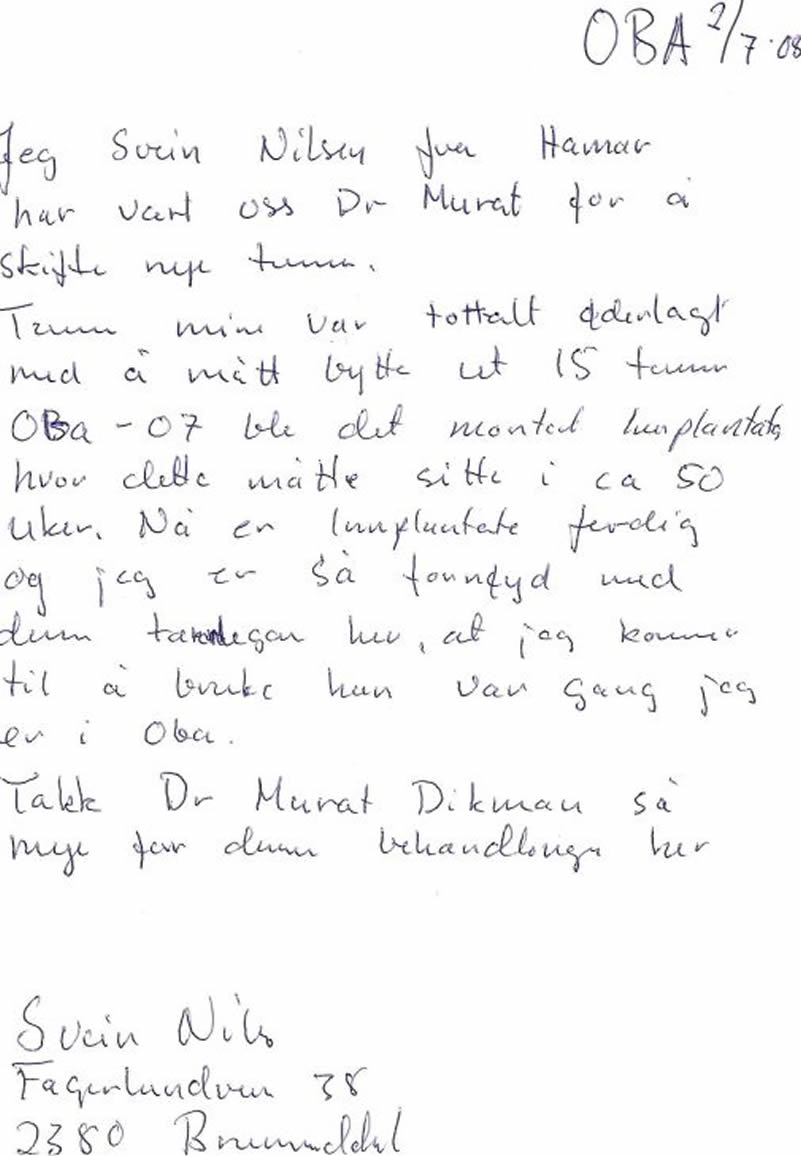 OBA 2/7-08
Jeg Svein Nilsen fra Hamar
har vært oss Dr Murat for å
skifte nye tenner.
Tenn mine var tottalt ødelagt
med å mått bytte ut 15 tenner
OBa - 07 ble det monted Implantats
hvor dette måtte sitte i ca 50
uker. Nå er Implantate ferdig
og jeg er så fornøyd med
denn tannlegan her, at jeg kommer
til å bruke han var gang jeg
er i Oba.
Takk Dr Murat Dikman så
mye for denn behandlingen her
Svein Nils
Fagerlundveien 38
2380 Brumunddal